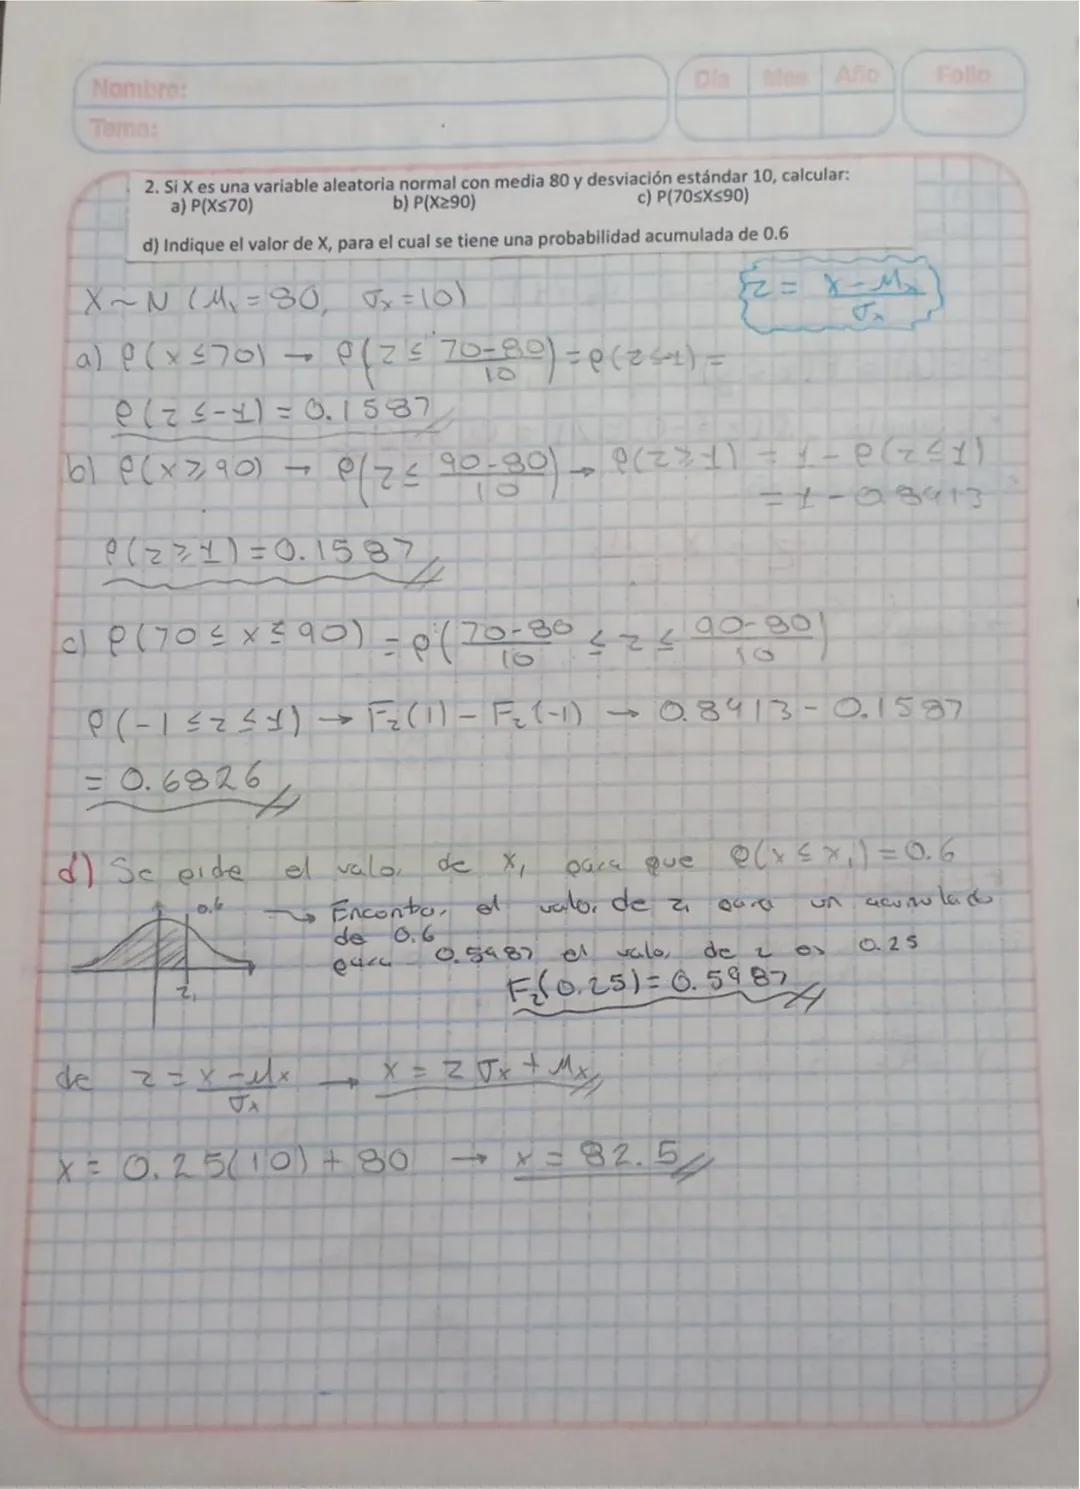 Nombre:
Día Mes Año Folio
Tema:
2. Si X es una variable aleatoria normal con media 80 y desviación estándar 10, calcular:
a) P(X≤70) b) P(X≥90) c) P(70≤X≤90)
d) Indique el valor de X, para el cual se tiene una probabilidad acumulada de 0.6
X ~ N (μx = 80, σx = 10) z = (x - μx)/σx
a) P(x ≤ 70) → P(z ≤ (70-80)/10) = P(z ≤ -1) =
P(z ≤ -1) = 0.1587
b) P(x ≥ 90) → P(z ≤ (90-80)/10) → P(z ≥ 1) = 1 - P(z ≤ 1)
= 1 - 0.8413
P(z ≥ 1) = 0.1587
c) P(70 ≤ x ≤ 90) = P((70-80)/10 ≤ z ≤ (90-80)/10)
P(-1 ≤ z ≤ 1) → Fz(1) - Fz(-1) → 0.8413 - 0.1587
= 0.6826
d) Se pide el valor de x₁ para que P(x ≤ x₁) = 0.6
0.6 → Encontrar el valor de z₁ para un acumulado
de 0.6
para 0.5987 el valor de z es 0.25
z₁ Fz(0.25) = 0.5987
de z = (x - μx)/σx → x = z σx + μx
x = 0.25(10) + 80 → x = 82.5